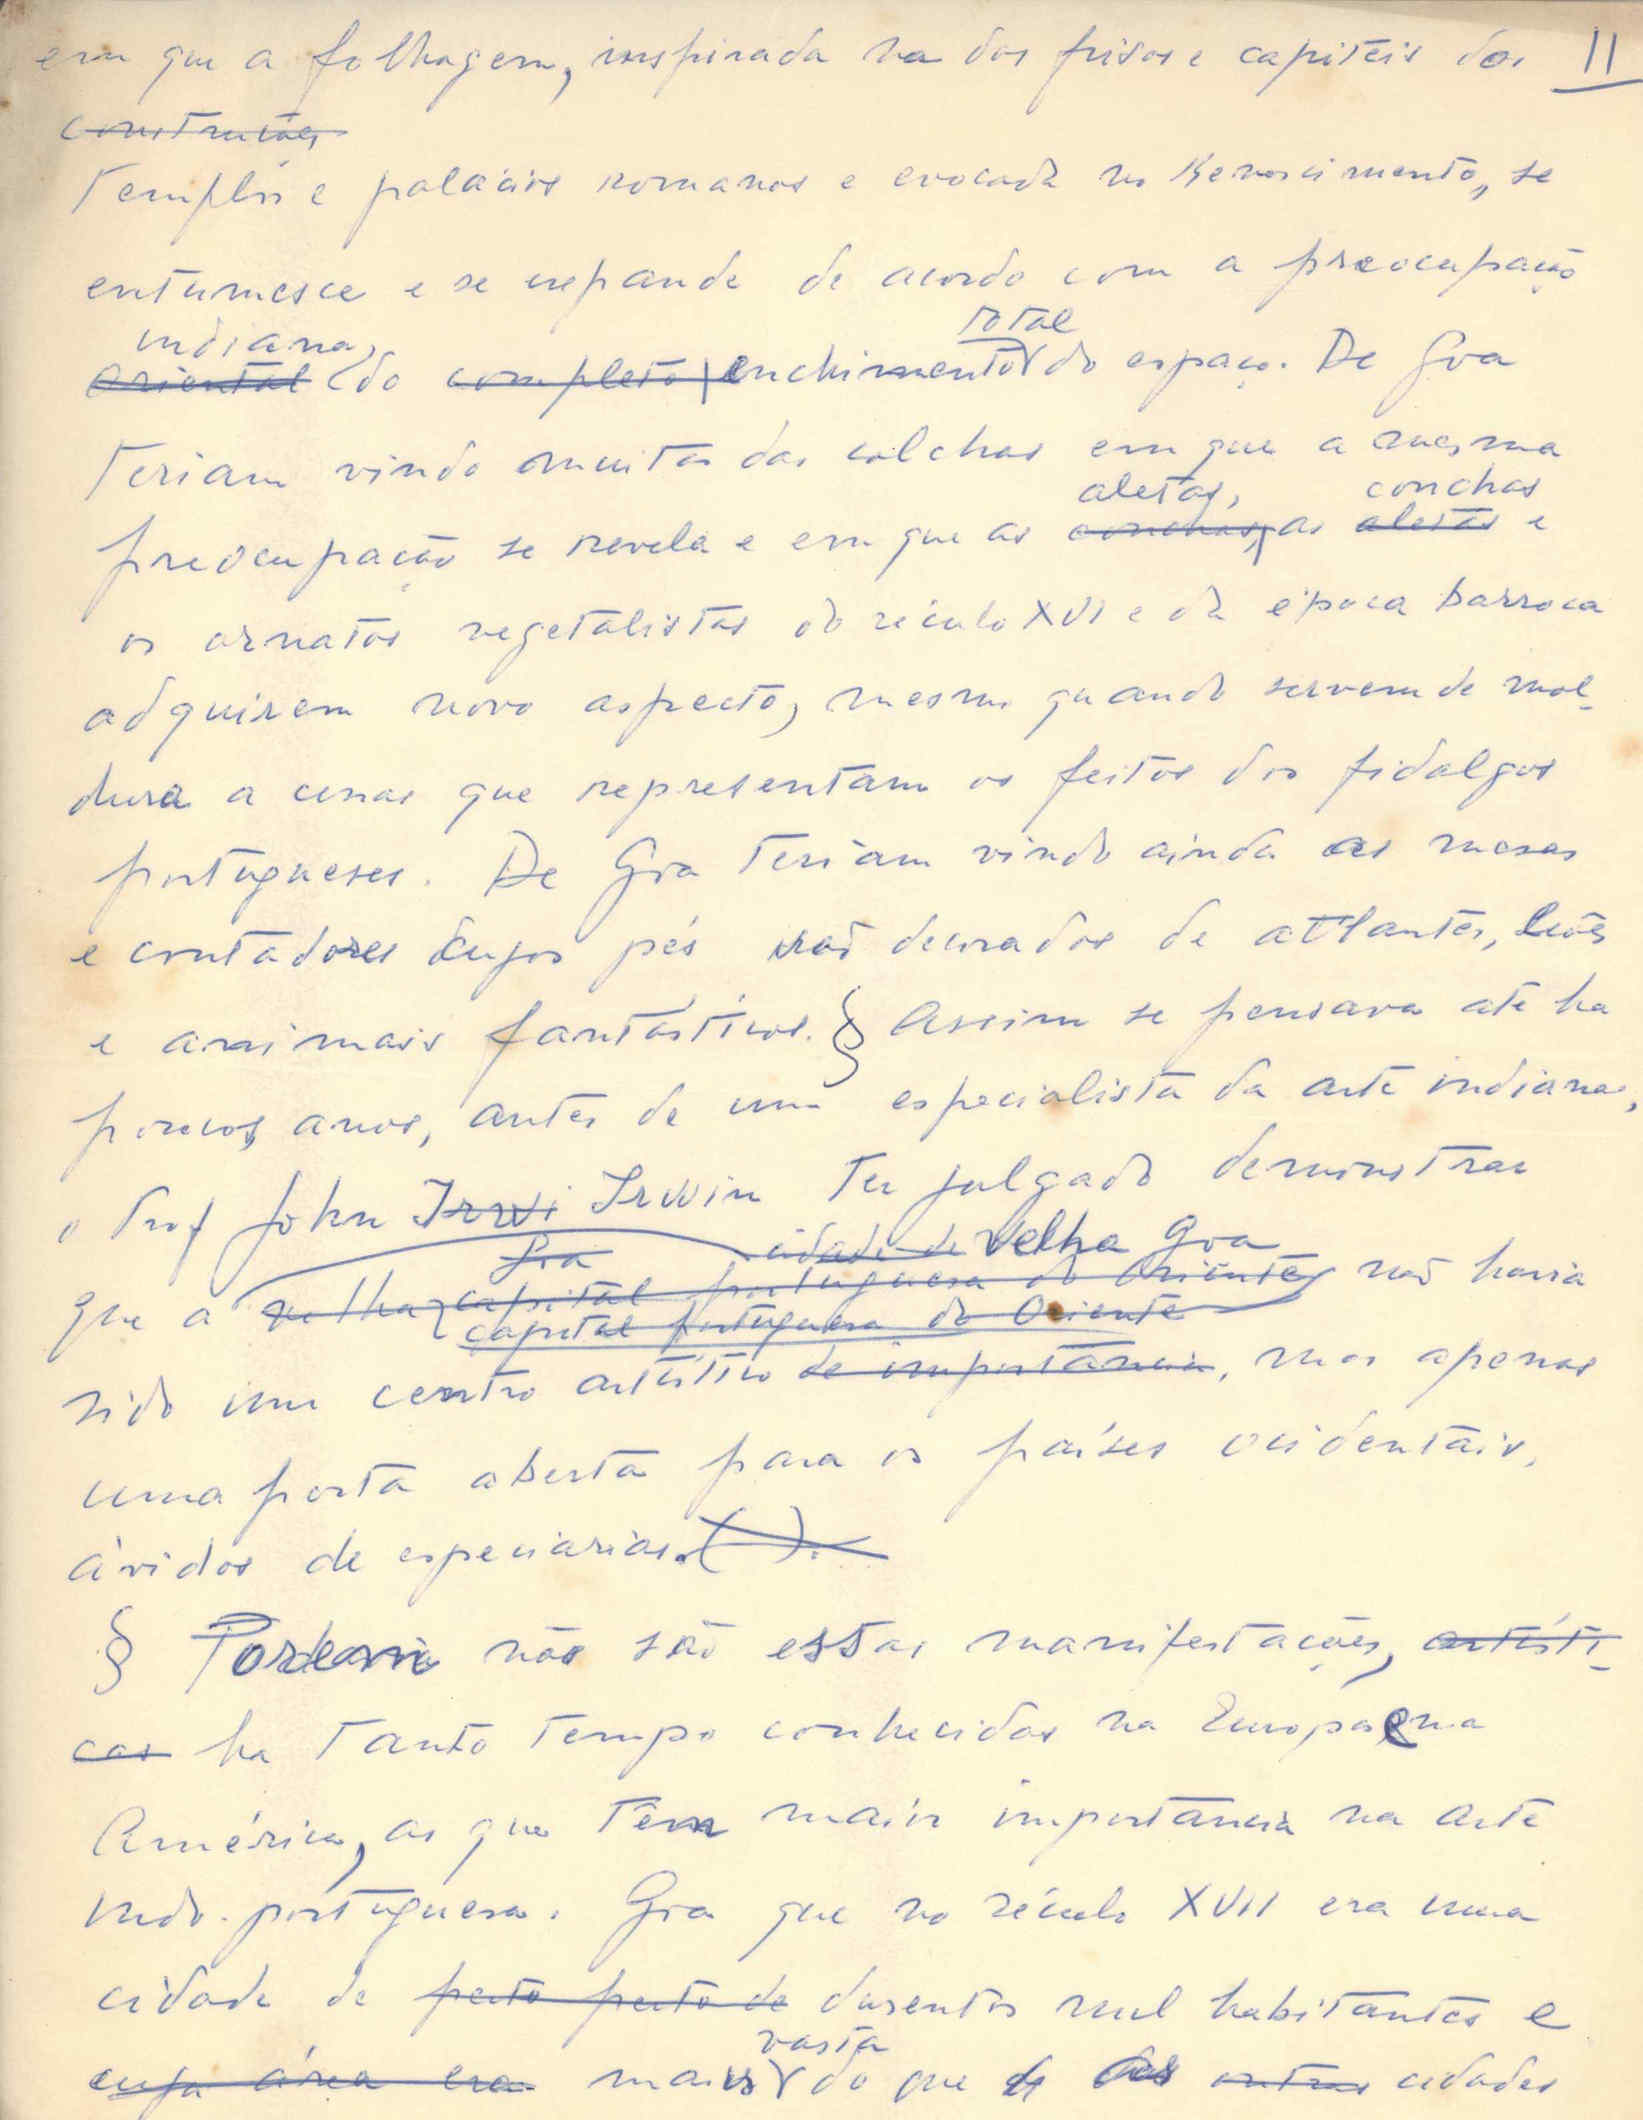 em que a folhagem, inspirada na dos frisos e capitéis dos II
construções
Templos e palácios romanos e evocada no Renascimento, se
entumesce e se expande de acordo com a preocupação
indiana, total
oriental do completo enchimento do espaço. De Goa
Teriam vindo muitas das colchas em que a mesma
aletas, conchas
preocupação se revela e em que as conchas, as aletas e
os ornatos vegetalistas do século XVI e da época barroca
adquirem novo aspecto, mesmo quando servem de mol-
dura a cenas que representam os feitos dos fidalgos
portugueses. De Goa teriam vindo ainda as mesas
e contadores cujos pés são decorados de atlantes, leões
e animais fantásticos. § Assim se pensava até ha
poucos anos, antes de um especialista da arte indiana,
o Prof John Irwi Irwin ter julgado demonstrar
Goa cidade de Velha Goa
que a velha capital portuguesa do Oriente não havia
capital portuguesa do Oriente
sido um centro artístico de importancia, mas apenas
uma porta aberta para os países ocidentais,
ávidos de especiarias. ( ).
§ Porém não são estas manifestações, artísti-
cas ha tanto tempo conhecidas na Europa e na
América, as que têm maior importancia na arte
indo-portuguesa. Goa que no século XVII era uma
cidade de perto perto de duzentos mil habitantes e
vasta
cuja área era mais do que as outras cidades